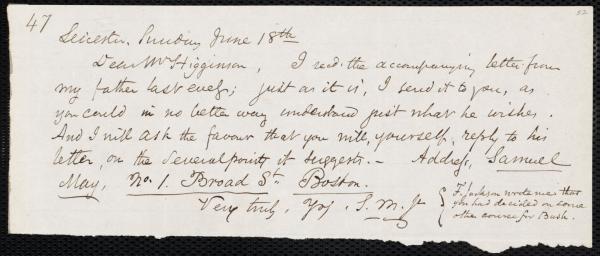 47
52
Leicester, Sunday, June 18th
Dear Mr Higginson, I recd. the accompanying letter from
my father last eveg; just as it is, I send it to you, as
you could in no better way understand just what he wishes.
And I will ask the favour that you will, yourself, reply to his
letter, on the several points it suggests. – Address, Samuel
May, No. 1. Broad St. Boston.
Very truly, Yrs, S. M. Jr
F. Jackson wrote me that
you had decided on some
other course for Bush.